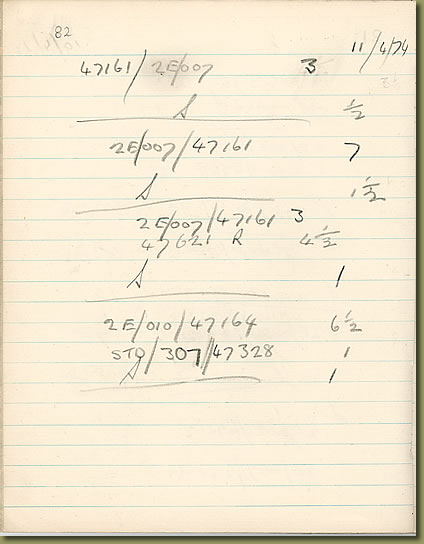 82
11/4/74
47161/2E/007 3
S ½
2E/007/47161 7
S 1½
2E/007/47161 3
47621 R 4½
S 1
2E/010/47164 6½
STO/307/47328 1
S 1